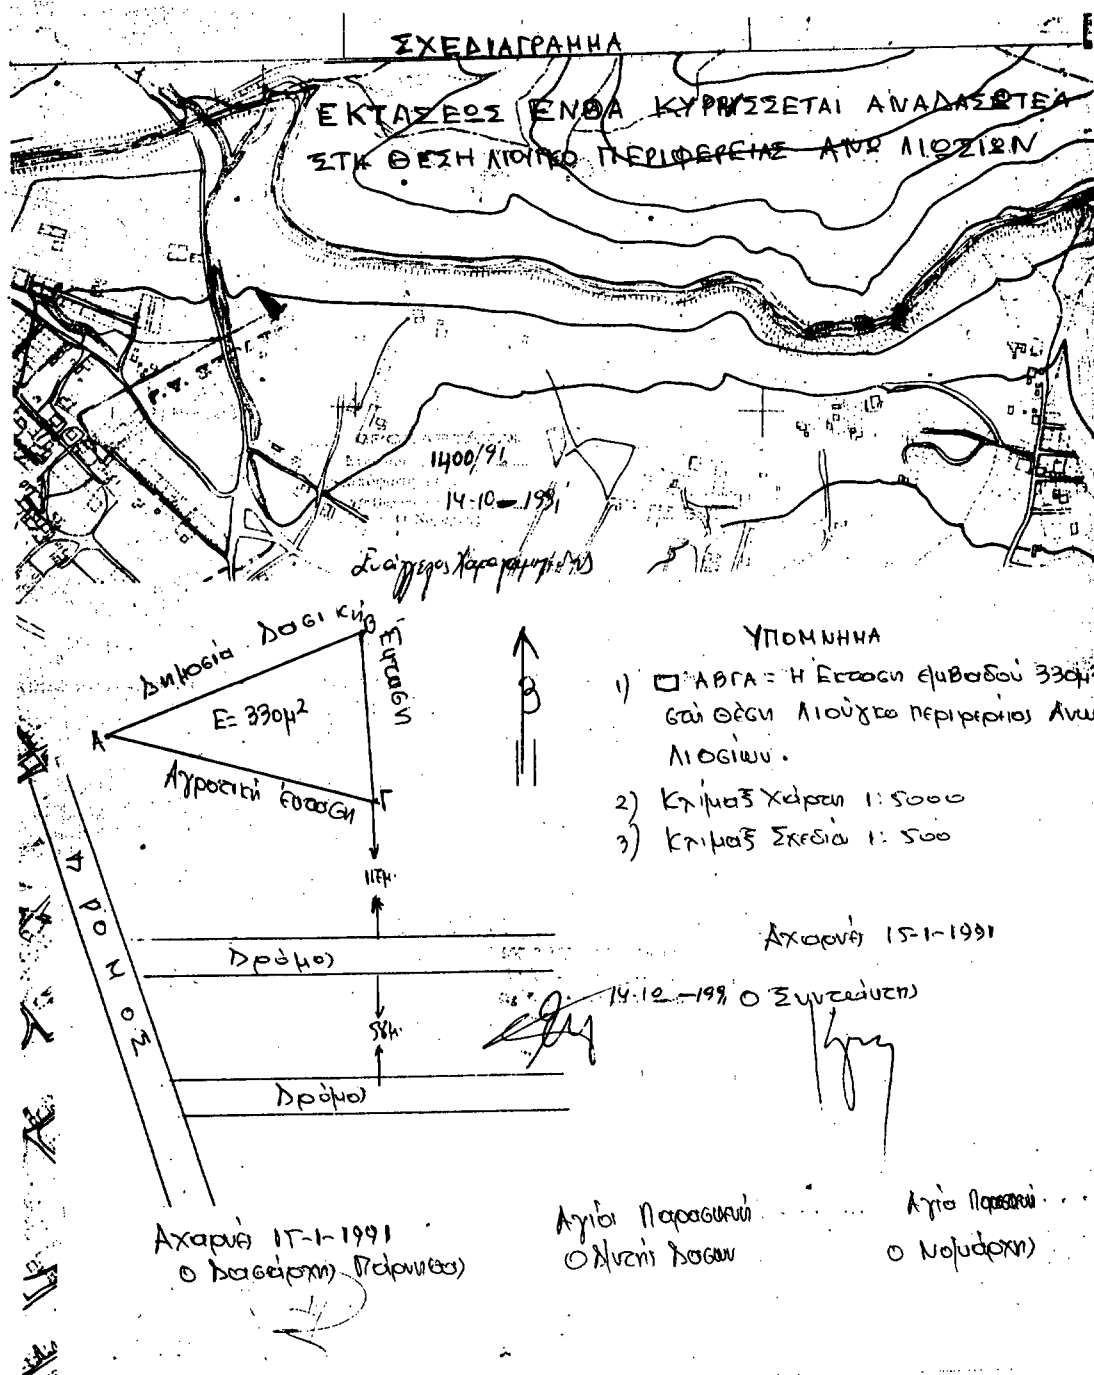 ΣΧΕΔΙΑΓΡΑΜΜΑ
ΕΚΤΑΣΕΩΣ ΕΝΘΑ ΚΥΡΗΣΣΕΤΑΙ ΑΝΑΔΑΣΩΤΕΑ
ΣΤΗ ΘΕΣΗ ΛΙΟΥΓΚΟ ΠΕΡΙΦΕΡΕΙΑΣ ΑΝΩ ΛΙΟΣΙΩΝ
1400/91
14-10-1991
Δημοσία Δασική Έκταση
Α
Β
Γ
Ε= 330μ²
Αγροτική έκταση
Β
117μ.
Δρόμος
58μ.
Δρόμος
ΔΡΟΜΟΣ
ΥΠΟΜΝΗΜΑ
1) ΑΒΓΑ = Η Έκταση εμβαδού 330μ²
στη θέση Λιούγκο περιφερείας Άνω
Λιοσίων.
2) Κλίμαξ Χάρτη 1:5000
3) Κλίμαξ Σχεδία 1:500
Αχαρνές 15-1-1991
14-10-1991 Ο Συντάκτης
Αχαρνές 15-1-1991
Ο Δασάρχης Πάρνηθας
Αγία Παρασκευή
Ο Δ/ντής Δασών
Αγία Παρασκευή
Ο Νομάρχης